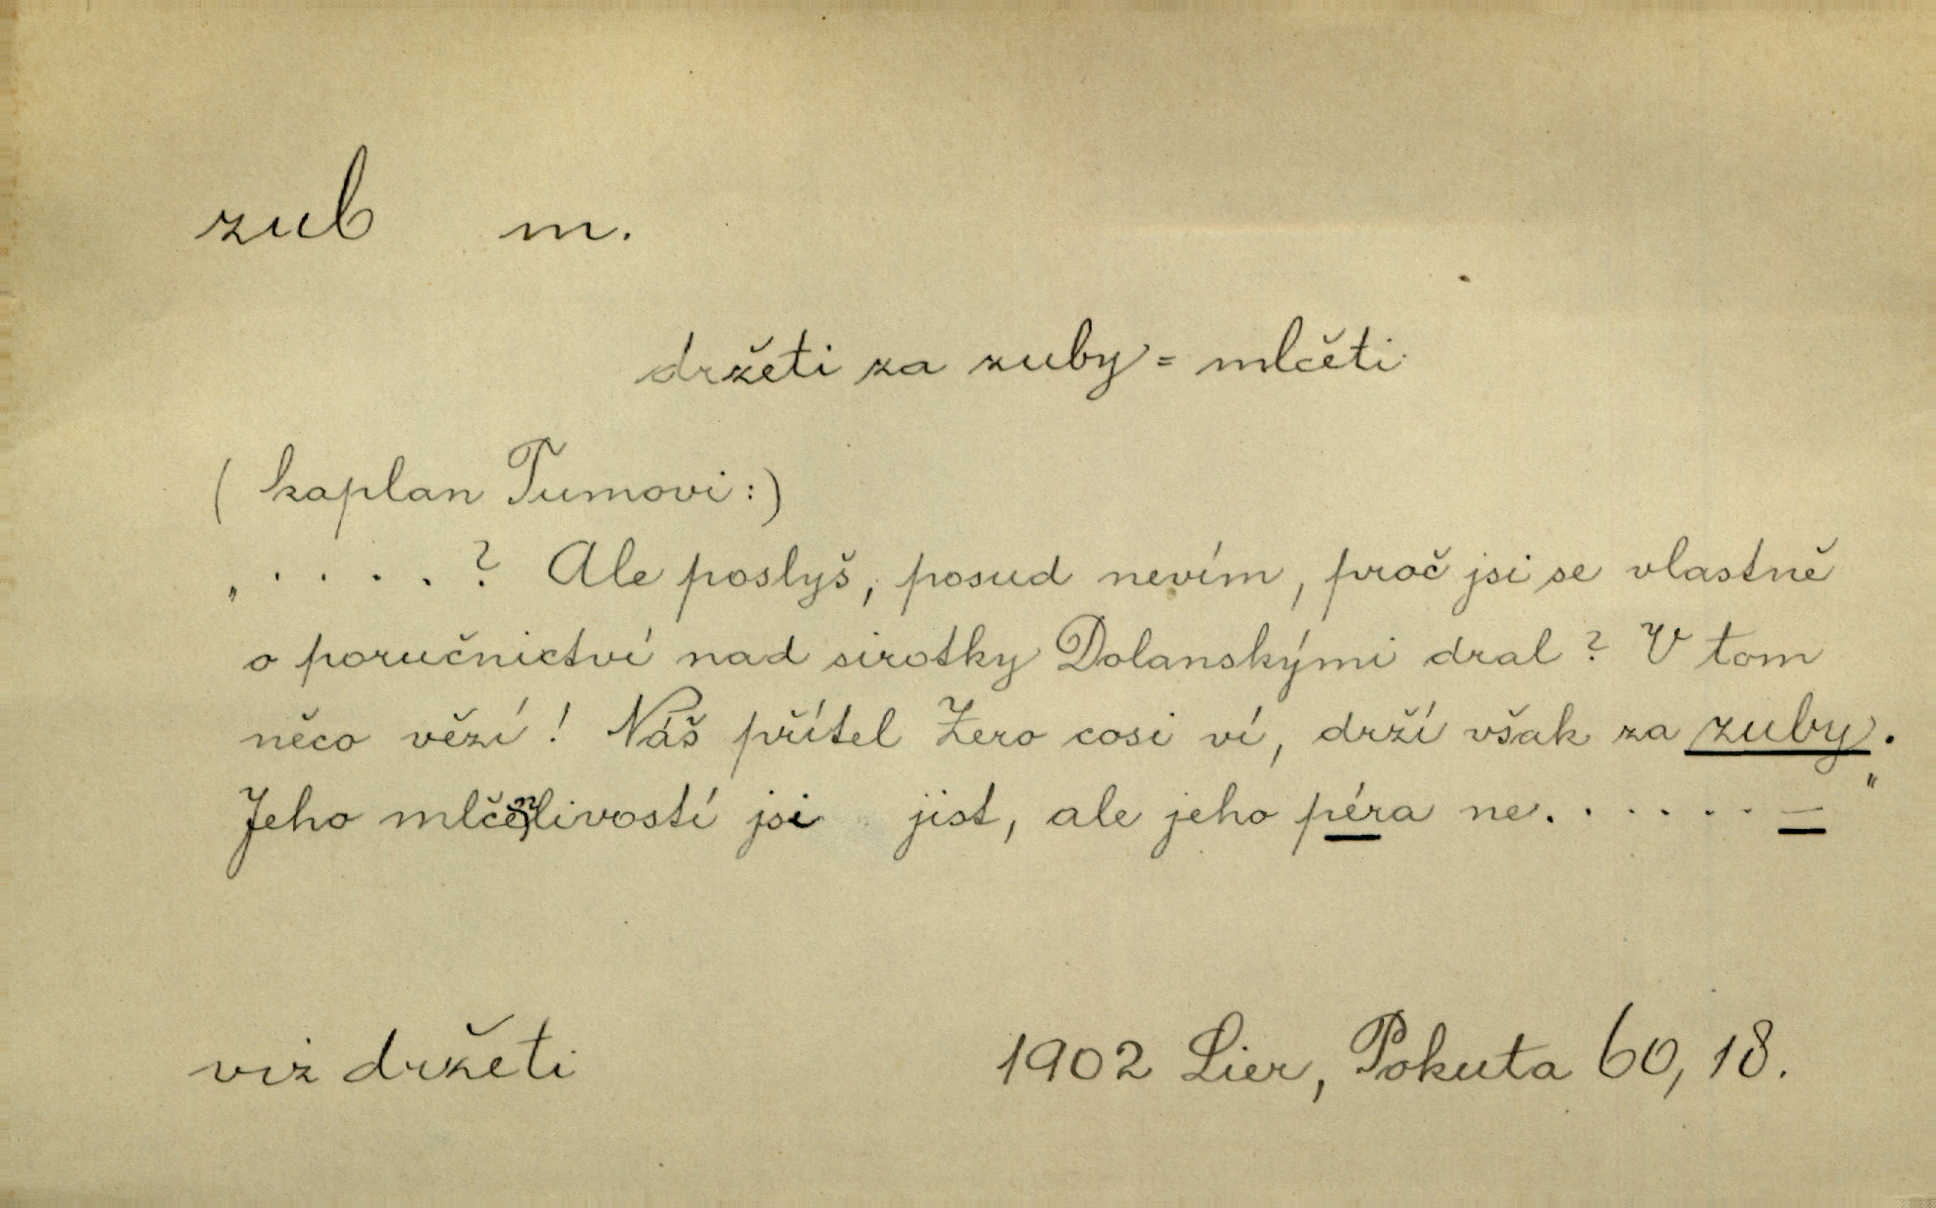 zub m.
držeti za zuby = mlčeti
( kaplan Tumovi : )
„ . . . . ? Ale poslyš, posud nevím, proč jsi se vlastně
o poručnictví nad sirotky Dolanskými dral ? V tom
něco vězí ! Náš přítel Zero cosi ví, drží však za zuby.
Jeho mlčenlivostí jsi jist, ale jeho péra ne. . . . . . — "
viz držeti
1902 Lier, Pokuta 60, 18.